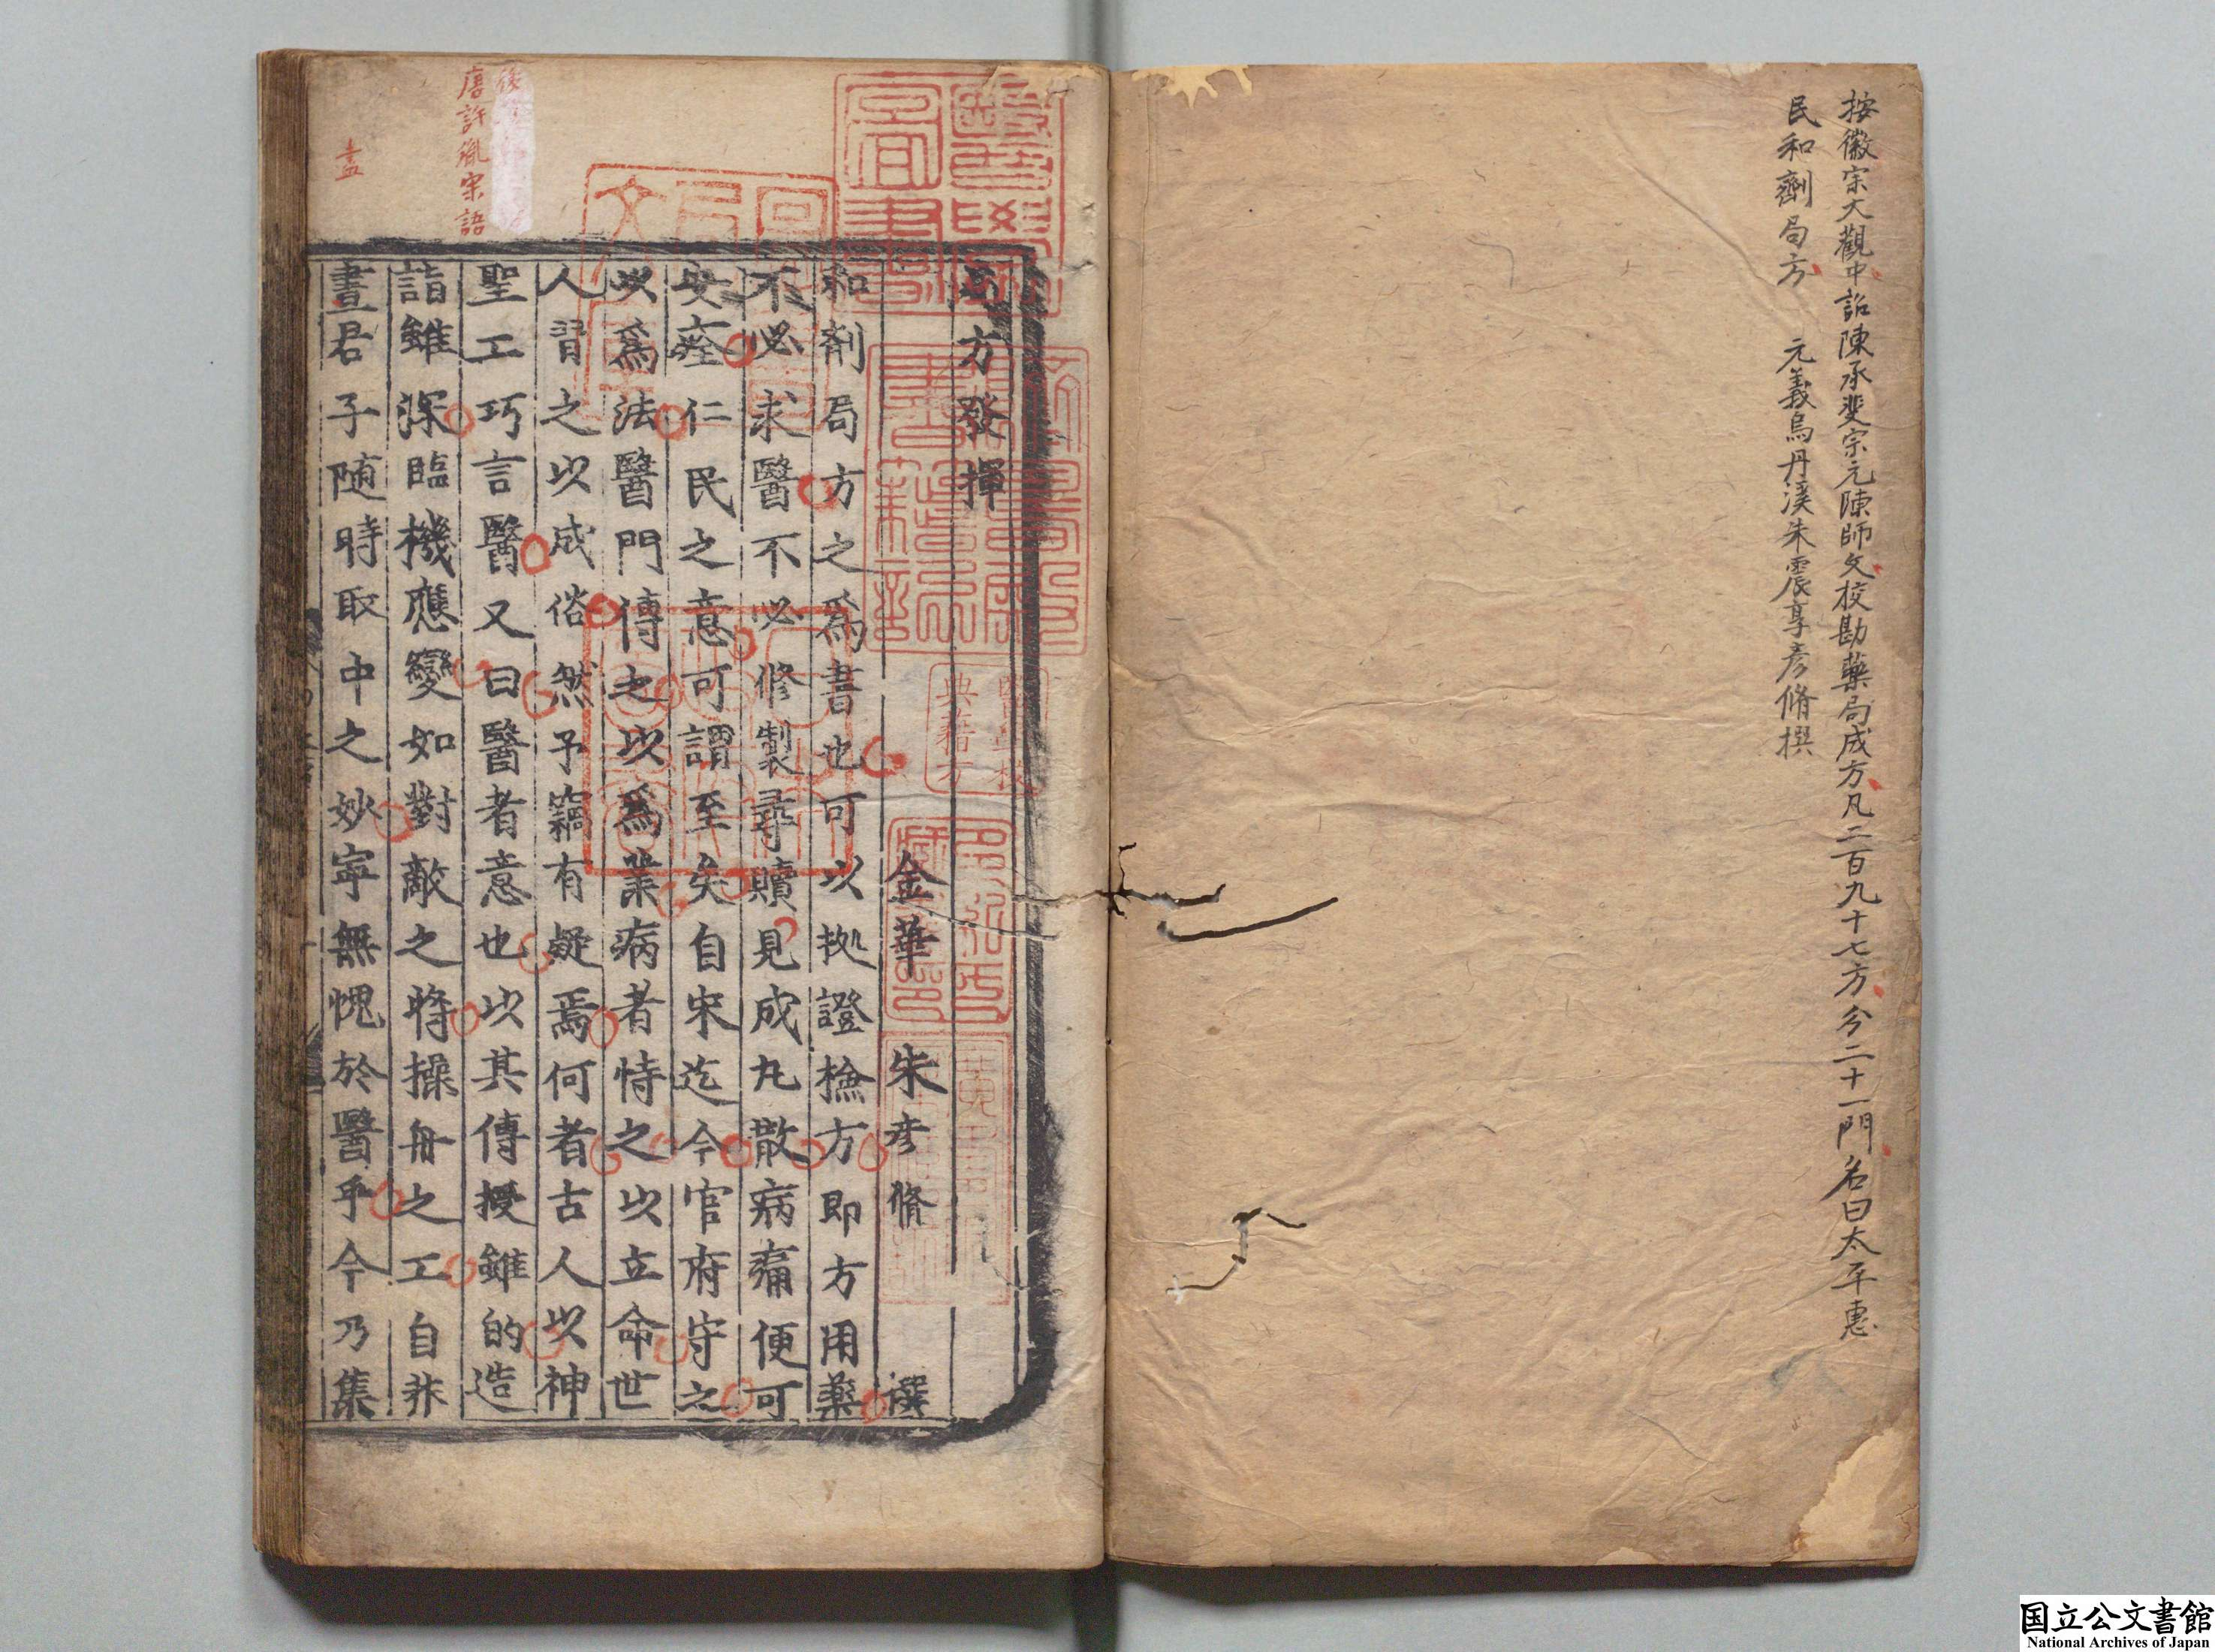 按徽宗大觀中詔陳承裴宗元陳師文校勘藥局成方凡二百九十七方分二十一門名曰太平惠
民和劑局方　元義烏丹溪朱震亨彥脩撰
方發揮
金華　朱彥脩　撰
和劑局方之爲書也可以拠證撿方即方用藥
不必求醫不必修製尋贖見成丸散病痛便可
安痊仁民之意可謂至矣自宋迄今官府守之
以爲法醫門傳之以爲業病者恃之以立命世
人習之以成俗然予竊有疑焉何者古人以神
聖工巧言醫又曰醫者意也以其傳授雖的造
詣雖深臨機應變如對敵之將操舟之工自非
盡君子随時取中之妙寧無愧於醫乎今乃集
唐許胤宗語
盡
国立公文書館
National Archives of Japan